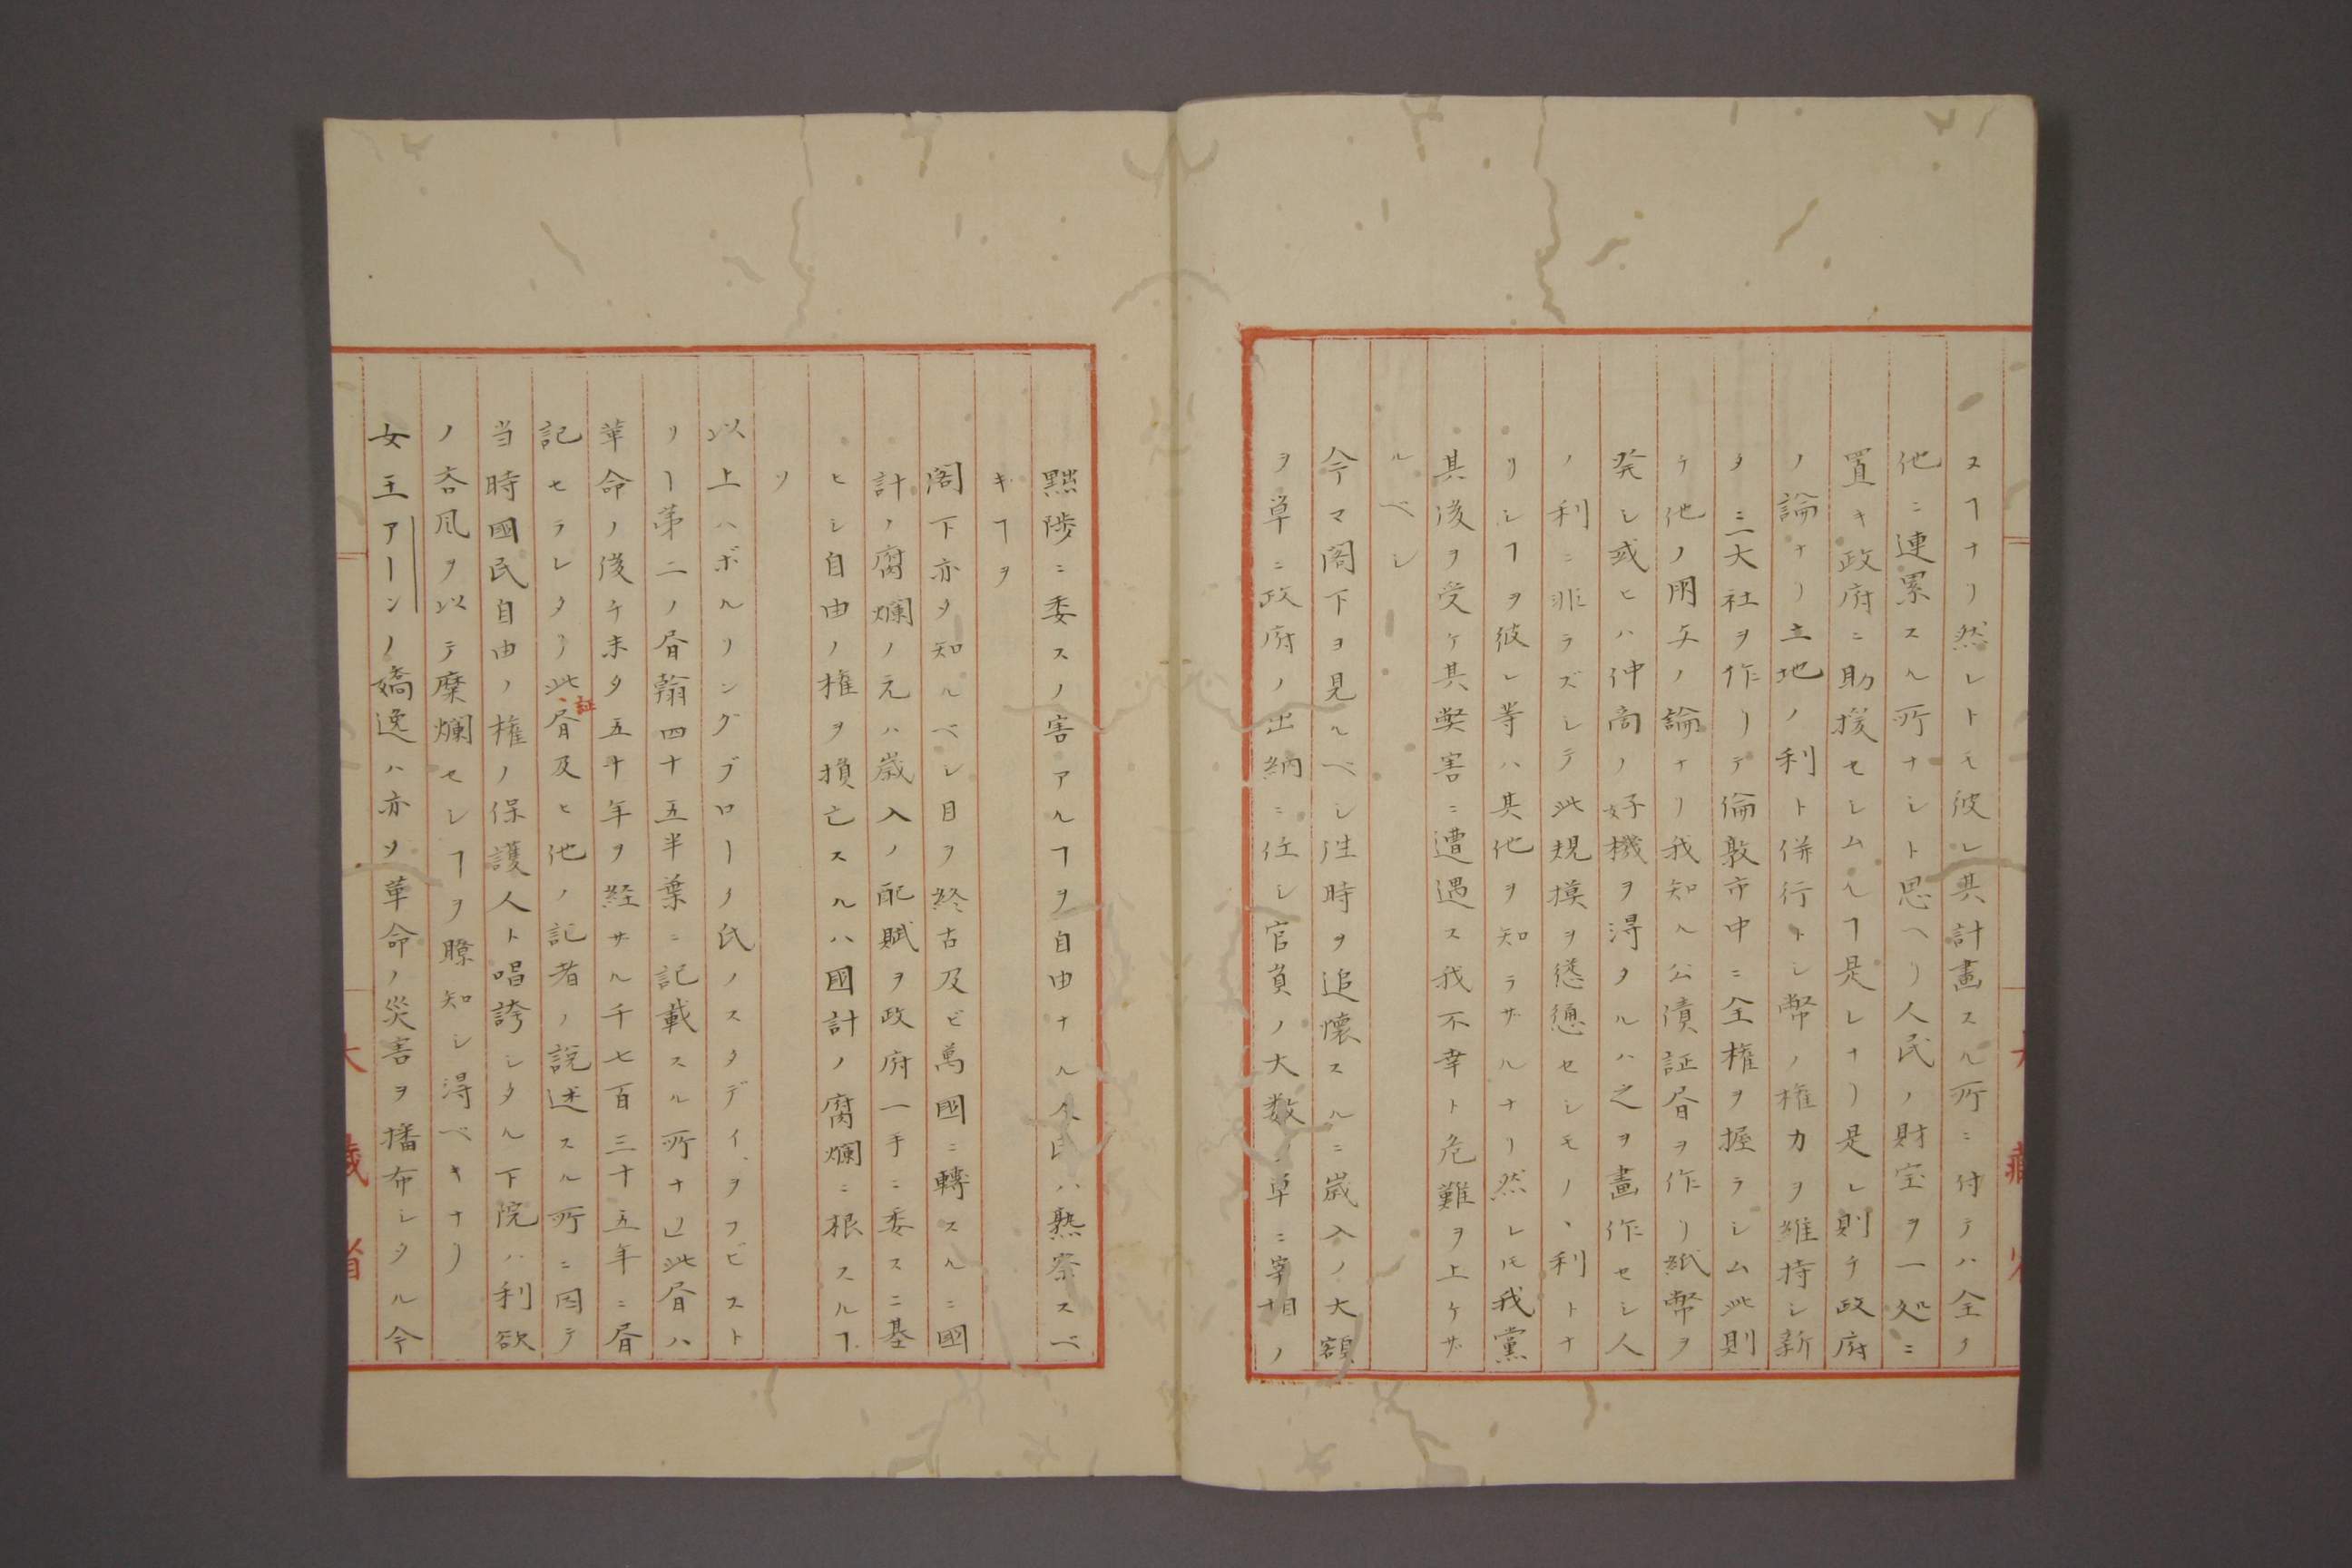 スヿナリ然レトモ彼レ其計畫スル所ニ付テハ全ク
他ニ連累スル所ナシト思ヘリ人民ノ財宝ヲ一処ニ
置キ政府ニ助援セシムルヿ是レナリ是レ則チ政府
ノ論ナリ土地ノ利ト併行トシ幣ノ権力ヲ維持シ新
タニ三大社ヲ作リテ倫敦市中ニ全権ヲ握ラシム此則
チ他ノ用与ノ論ナリ我知ル公債証書ヲ作リ紙幣ヲ
発シ或ヒハ仲商ノ好機ヲ得タルハ之ヲ畫作セシ人
ノ利ニ非ラズシテ此規模ヲ慫慂セシモノヽ利トナ
リシヿヲ彼レ等ハ其他ヲ知ラザルナリ然レ𪜈我黨
其後ヲ受ケ其弊害ニ遭遇ス我不幸ト危難ヲ上ケザ
ルベシ
今マ閣下ヲ見ルベシ往時ヲ追懐スルニ歳入ノ大額
ヲ単ニ政府ノ出納ニ任シ官員ノ大数ヲ単ニ宰相ノ
黜陟ニ委スノ害アルヿヲ自由ナル人民ハ熟察スベ
キヿヲ
閣下亦タ知ルベシ目ヲ終古及ビ萬國ニ轉スルニ國
計ノ腐爛ノ元ハ歳入ノ配賦ヲ政府一手ニ委スニ基
ヒシ自由ノ権ヲ損亡スルハ國計ノ腐爛ニ根スルヿ
ヲ
以上ハボルリングブローク氏ノスタデイ、ヲフヒスト
リー第二ノ書翰四十五半葉ニ記載スル所ナリ此書ハ
革命ノ後チ未タ五十年ヲ経サル千七百三十五年ニ書
記セラレタリ此書証及ヒ他ノ記者ノ説述スル所ニ因テ
当時國民自由ノ権ノ保護人ト唱誇シタル下院ハ利欲
ノ吝風ヲ以テ糜爛セシヿヲ瞭知シ得ベキナリ
女王アーンノ嬌逸ハ亦タ革命ノ災害ヲ播布シタル今
大藏省